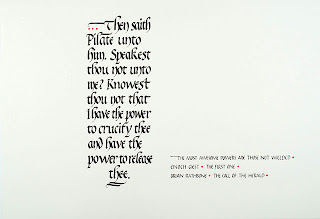 ...Then saith
Pilate unto
him, Speakest
thou not unto
me? Knowest
thou not that
I have the power
to crucify thee
and have the
power to release
thee.
THE MOST AWESOME POWERS ARE THOSE NOT WIELDED •
ENOCH GEST • THE FIRST ONE •
BRIAN RATHBONE • THE CALL OF THE HERALD •